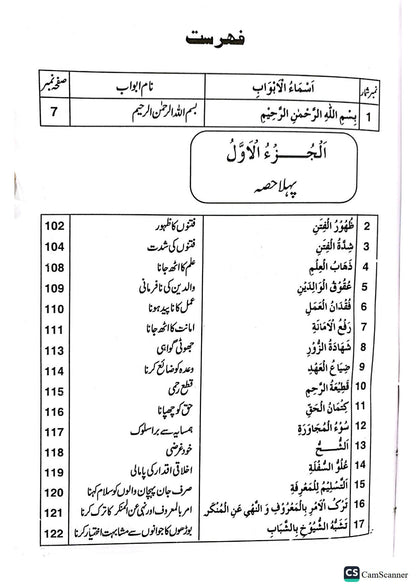 فہرست
نمبر شمار اَسْمَاءُ الْاَبْوَابِ نام ابواب صفحہ نمبر
1 بِسْمِ اللّٰهِ الرَّحْمٰنِ الرَّحِيْمِ بسم اللہ الرحمٰن الرحیم 7
اَلْجُزْءُ الْاَوَّلُ
پہلا حصہ
2 ظُهُوْرُ الْفِتَنِ فتنوں کا ظہور 102
3 شِدَّةُ الْفِتَنِ فتنوں کی شدت 104
4 ذَهَابُ الْعِلْمِ علم کا اٹھ جانا 108
5 عُقُوْقُ الْوَالِدَيْنِ والدین کی نافرمانی 109
6 فُقْدَانُ الْعَمَلِ عمل کا ناپید ہونا 110
7 رَفْعُ الْاَمَانَةِ امانت کا اٹھ جانا 111
8 شَهَادَةُ الزُّوْرِ جھوٹی گواہی 113
9 ضِيَاعُ الْعَهْدِ وعدہ کو ضائع کرنا 114
10 قَطِيْعَةُ الرَّحِمِ قطع رحمی 115
11 كِتْمَانُ الْحَقِّ حق کو چھپانا 116
12 سُوْءُ الْمُجَاوَرَةِ ہمسایہ سے برا سلوک 117
13 اَلشُّحُّ خود غرضی 118
14 عُلُوُّ السَّفَلَةِ اخلاقی اقدار کی پامالی 119
15 اَلتَّسْلِيْمُ لِلْمَعْرِفَةِ صرف جان پہچان والوں کو سلام کہنا 120
16 تَرْكُ الْاَمْرِ بِالْمَعْرُوْفِ وَ النَّهْيِ عَنِ الْمُنْكَرِ امر بالمعروف اور نہی عن المنکر کا ترک کرنا 121
17 تَشَبُّهُ الشُّيُوْخِ بِالشَّبَابِ بوڑھوں کا جوانوں سے مشابہت اختیار کرنا 122
CS CamScanner